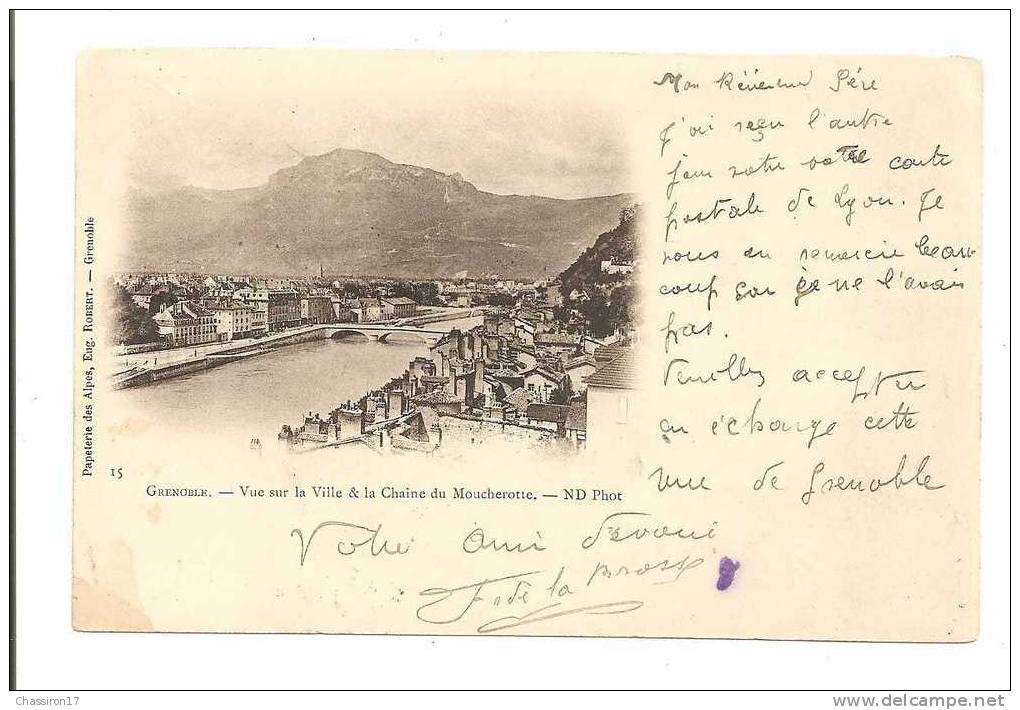 Mon Révérend Père
J'ai reçu l'autre
jour votre carte
postale de Lyon. Je
vous en remercie beau
coup car je ne l'avais
pas.
Veuillez accepter
en échange cette
vue de Grenoble
Papeterie des Alpes, Eug. ROBERT. — Grenoble
15
GRENOBLE. — Vue sur la Ville & la Chaine du Moucherotte. — ND Phot
Votre Ami Dévoué
de la Brosse
Chassiron17
http://www.delcampe.net